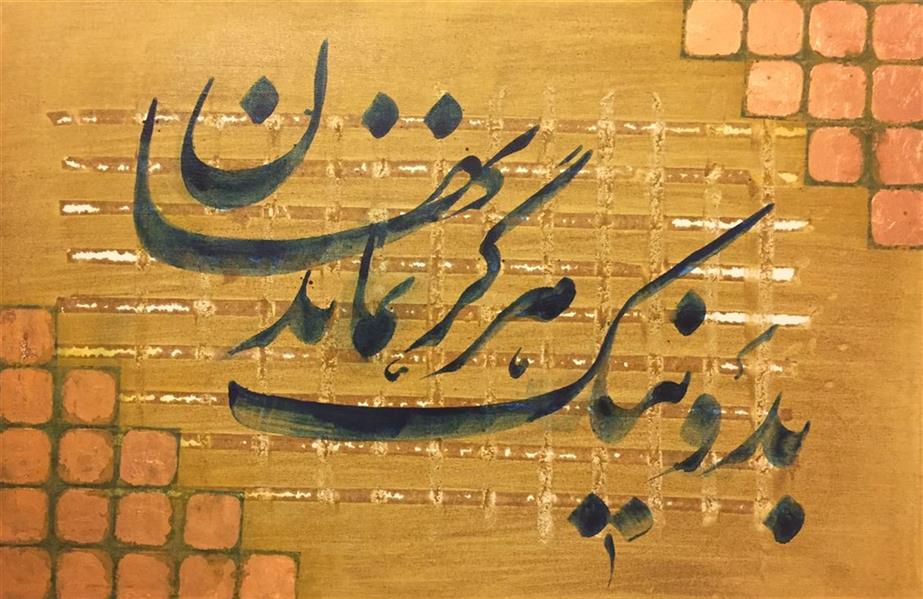 بد و نیک هرگز نماند نهان